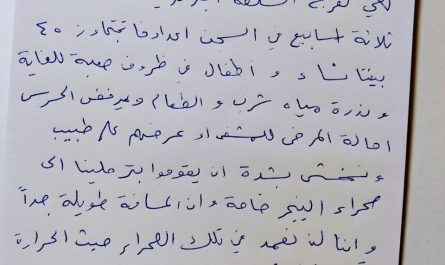 ثلاثة اسابيع في السجن اعدادنا تتجاوز ٤٥
بيننا نساء و أطفال في ظروف صعبة للغاية
وندرة مياه شرب و الطعام ويرفض الحرس
احالة المرضى للمشفى او عرضهم على طبيب
ونخشى بشدة ان يقوموا بترحيلنا الى
صحراء النيجر خاصة وان المسافة طويلة جداً
و اننا لن نصمد في تلك الصحراء حيث الحرارة